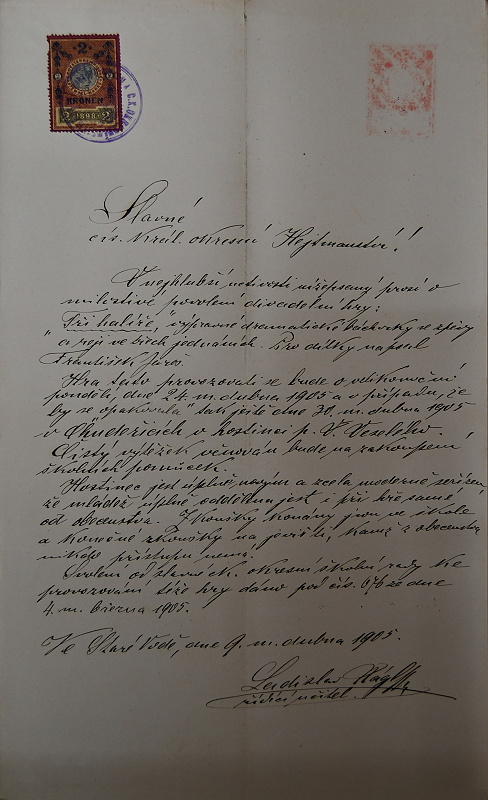 2
KRONEN
2 1898 2
Slavné
cís. král. okresní Hejtmanství!
V nejhlubší uctivosti nížepsaný prosí o
milostivé povolení divadelní hry:
"Tři halíře," výpravné dramatické báchorky se zpěvy
a reji ve třech jednáních. Pro dítky napsal
František
Hra tato provozovati se bude o velikonoční
pondělí, dne 24. m. dubna 1905 a v případu, že
by se opakovala, tak ještě dne 30. m. dubna 1905
v Chudeřicích v hostinci p. V. Veselého.
Čistý výtěžek věnován bude na zakoupení
školních pomůcek.
Hostinec jest úplně novým a zcela moderně zařízen,
že mládež úplně oddělena jest i při hře samé
od obecenstva. Zkoušky konány jsou ve škole
a konečné zkoušky na jevišti, kamž z obecenstva
nikdo přístupu nemá.
Svolení od slavné c. k. okresní školní rady ke
provozování téže hry dáno pod čís. 676 ze dne
4. m. března 1905.
Ve Staré Vodě, dne 9. m. dubna 1905.
Ladislav
řídící učitel.